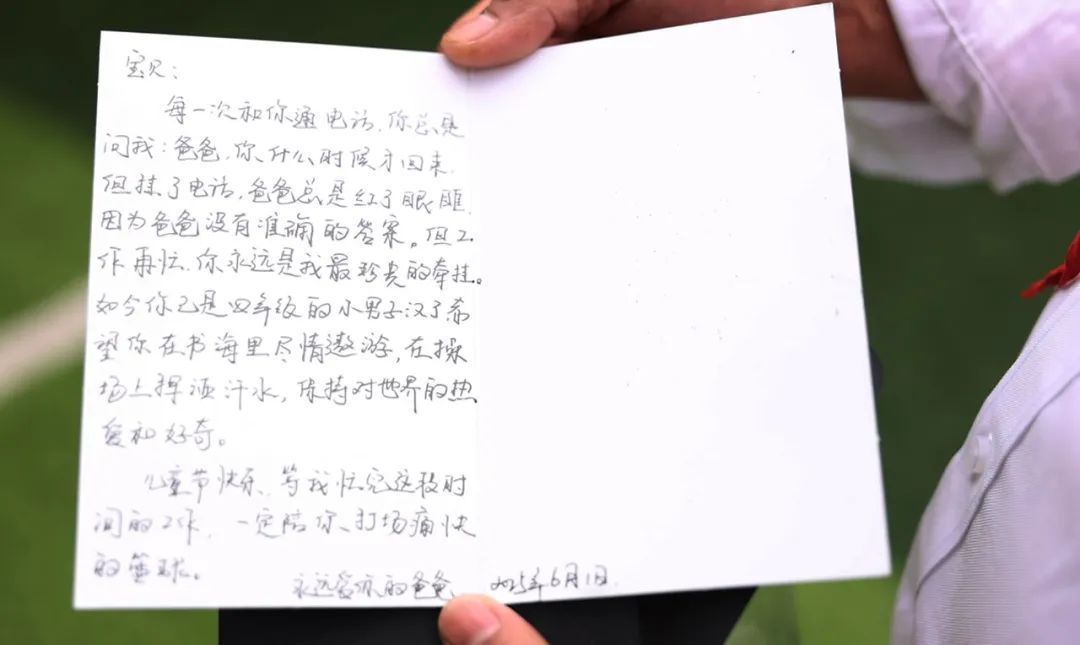 宝贝：
每一次和你通电话，你总是
问我：爸爸，你什么时候才回来，
但挂了电话，爸爸总是红了眼眶，
因为爸爸没有准确的答案。但工
作再忙，你永远是我最珍贵的牵挂。
如今你已是四年级的小男子汉了希
望你在书海里尽情遨游，在操
场上挥洒汗水，保持对世界的热
爱和好奇。
儿童节快乐，等我忙完这段时
间的工作，一定陪你打场痛快
的篮球。
永远爱你的爸爸 2025年6月1日.